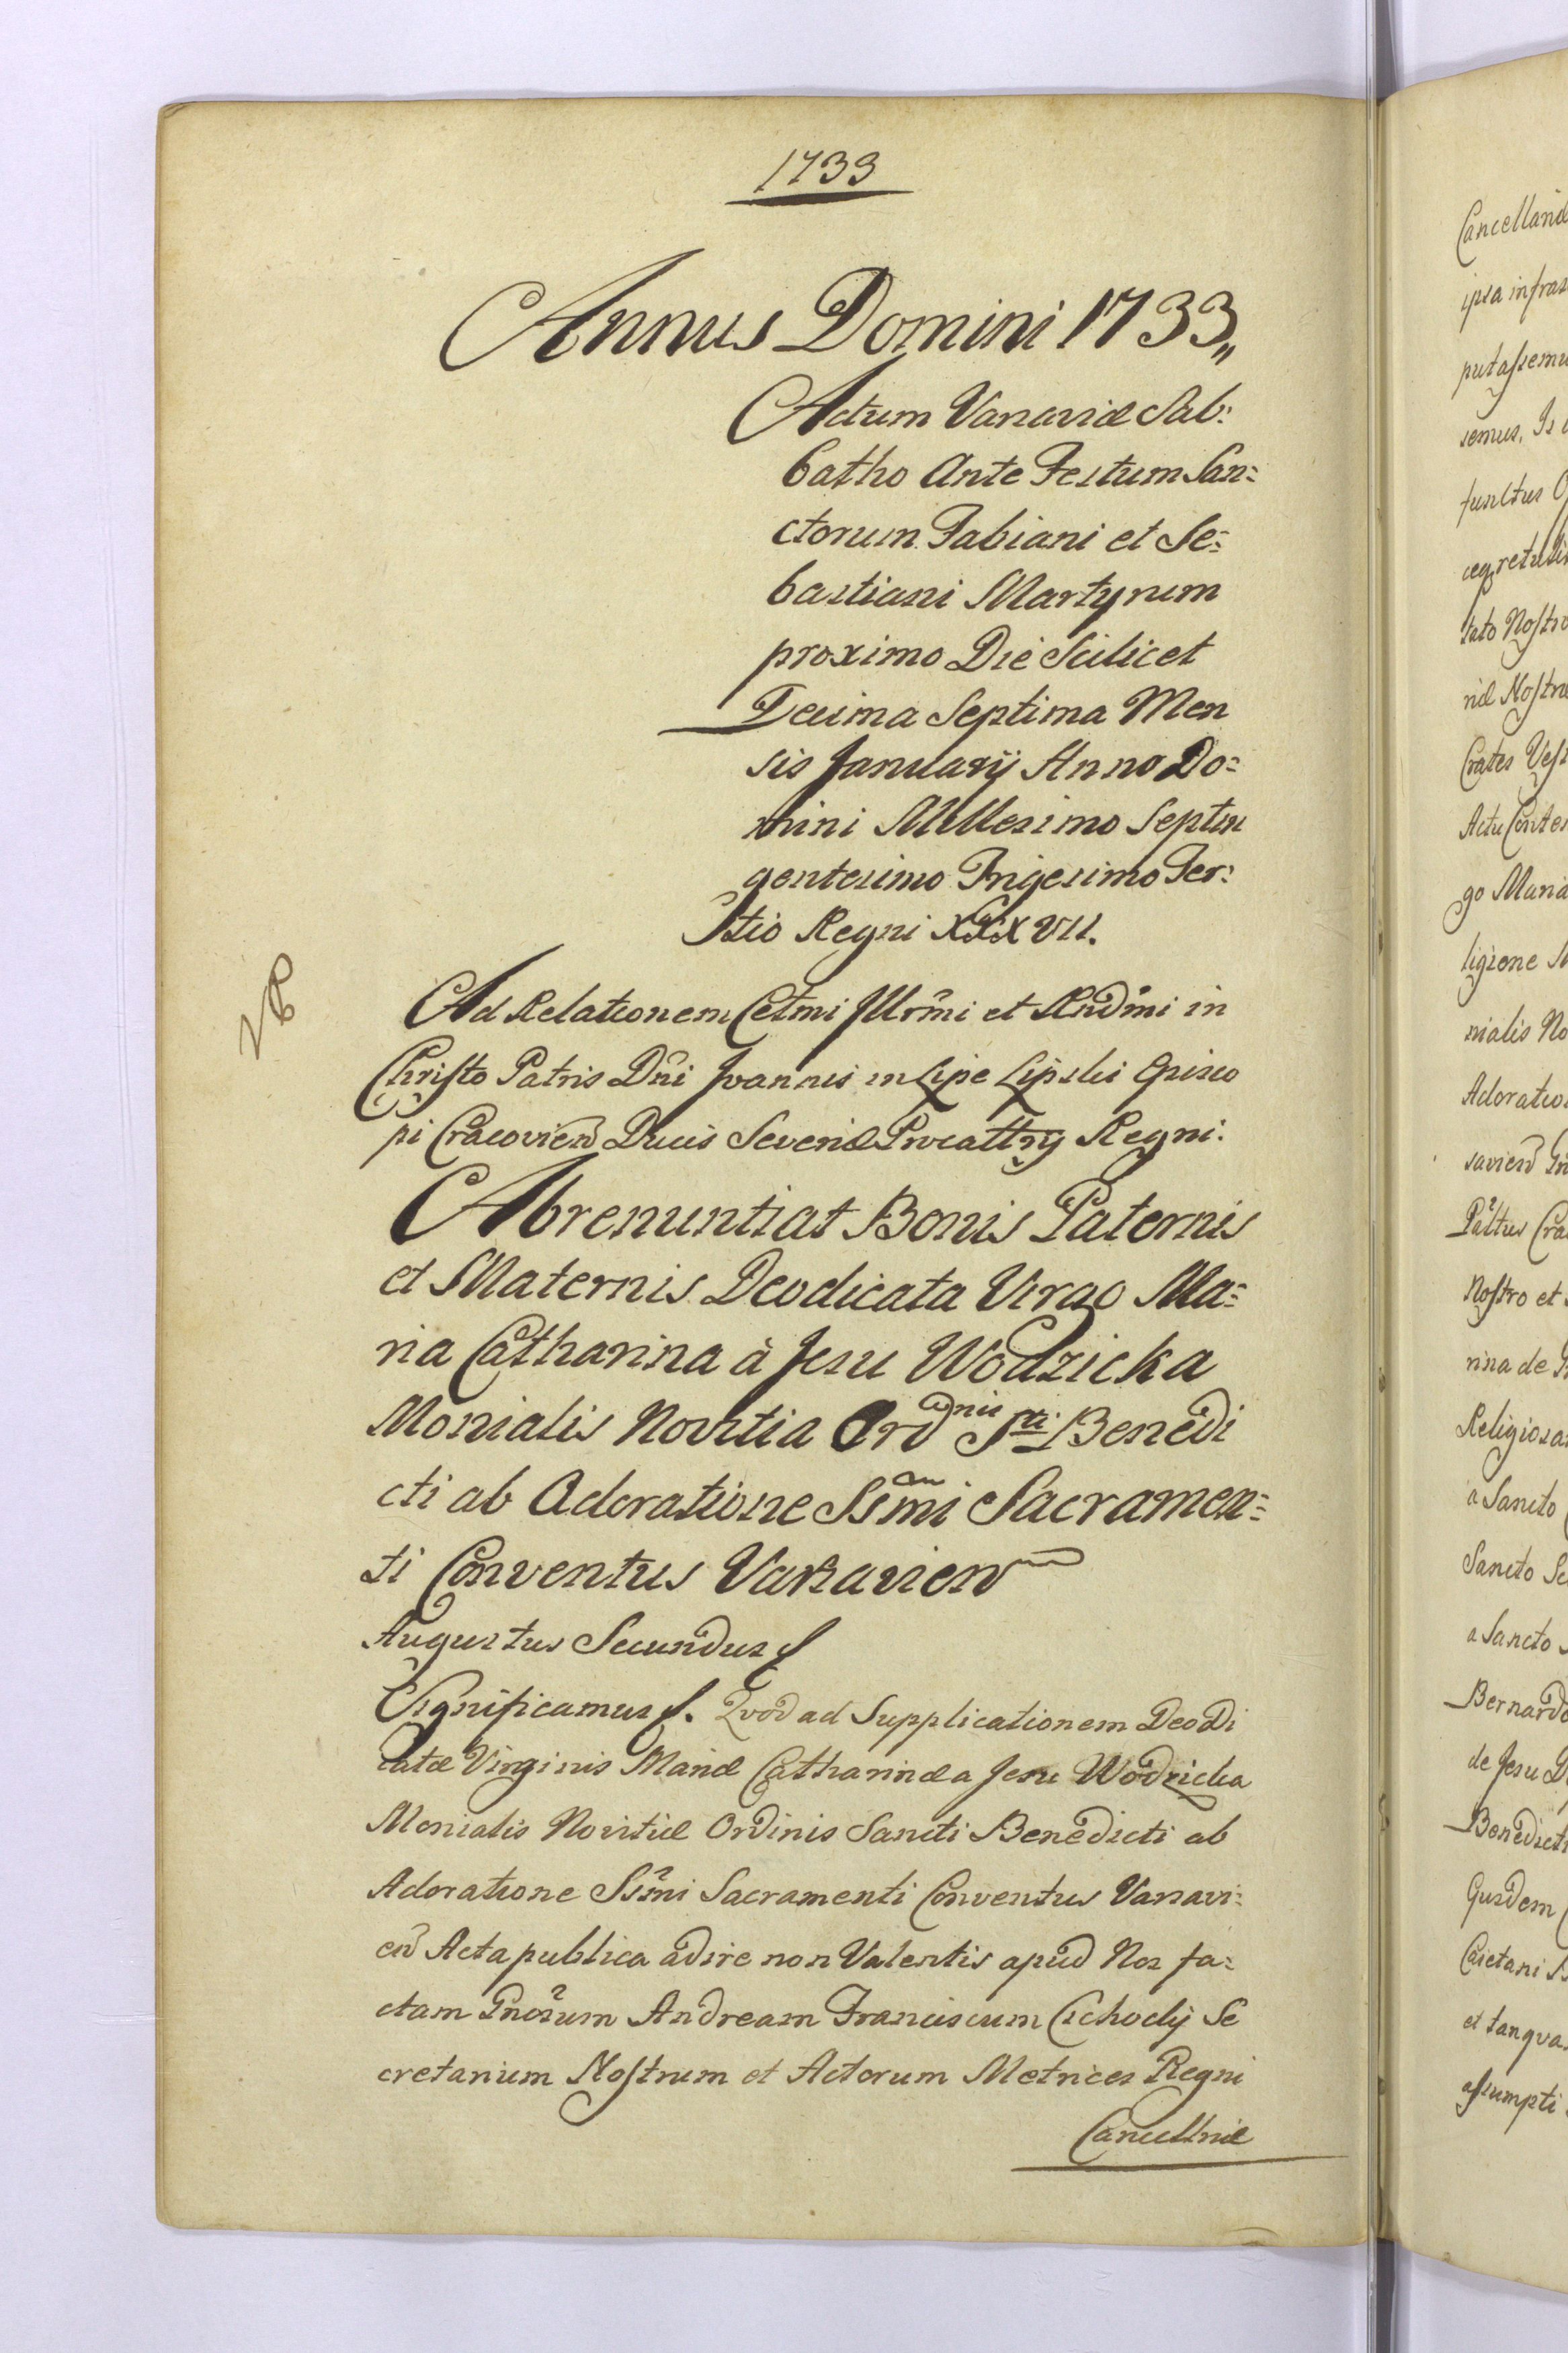 1733
Annus Domini 1733,,
Actum Varsaviæ Sab:
batho Ante Festum San:
ctorum Fabiani et Se:
bastiani Martyrum
proximo Die Scilicet
Decima Septima Men
sis Januarij Anno Do:
mini Millesimo Septin
gentesimo Trigesimo Ter:
tio Regni XXXVII.
Ad Relationem Celmi Illrmi et Rndmi in
Christo Patris Dni Joannis in Lipe Lipski Episco
pi Cracovien Ducis Severiæ Procattrij Regni.
Abrenuntiat Bonis Paternis
et Maternis Deodicata Virgo Ma:
ria Catharina à Jesu Wodzicka
Monialis Novitia Ordnis Sti Benedi
cti ab Adoratione Ssmi Sacramen:
ti Conventus Varsavien
Augustus Secundus
Significamus Quod ad Supplicationem Deodi
catæ Virginis Mariæ Catharinæ a Jesu Wodzicka
Monialis Novitiæ Ordinis Sancti Benedicti ab
Adoratione Ssmi Sacramenti Conventus Varsavi:
en Acta publica adire non Valentis apud Nos fa:
ctam Gnosum Andream Franciscum Cichocki Se
cretarium Nostrum et Actorum Metrices Regni
Cancellriæ
Cancellariæ
ipsa infras
putassemu
semus. Is
functus
retuli
tato Nostro
riæ Nostræ
Crates Vest
Actu Conte
go Maria
ligione
nialis No
Adoratio
savien
Palttus Cra
Nostro et
rina de
Religiosa
a Sancto
Sancto Se
a Sancto
Bernardo
de Jesu
Benedicti
Ejusdem
Caietani
et tanqua
assumpti